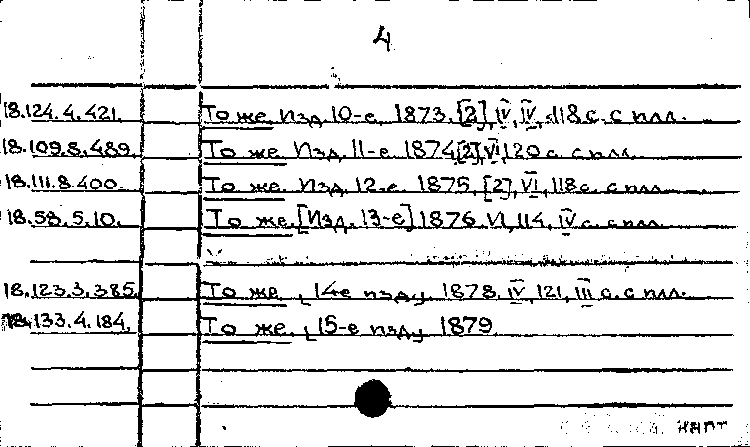 4
18.124.4.421. То же. Изд. 10-е. 1873. [2], IV, IV, 118 с. с илл.
18.109.8.489. То же. Изд. 11-е. 1874. [2], VI, 120 с. с илл.
18.111.8.400. То же. Изд. 12-е. 1875. [2], VI, 118 с. с илл.
18.58.5.10. То же. [Изд. 13-е] 1876. VI, 114, IV с. с илл.
18.123.3.385. То же. [14-е изд.]. 1878. IV, 121, III с. с илл.
18.133.4.184. То же. [15-е изд.]. 1879.